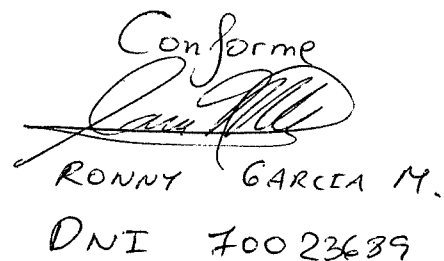 Conforme
RONNY GARCIA M.
DNI 70023639